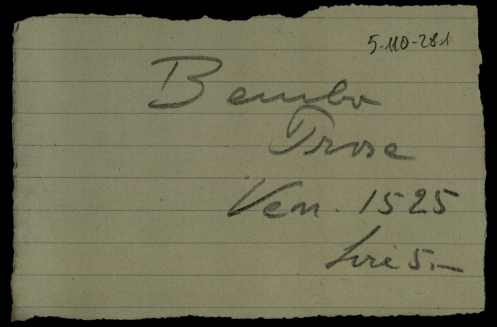 5-110-281
Bembo
Prose
Ven. 1525
Lire 5.—